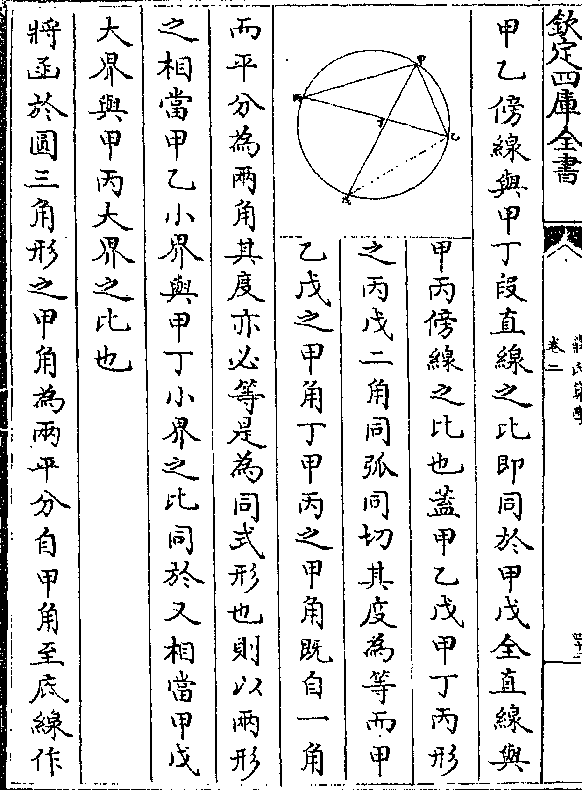 欽定四庫全書
卷二
甲乙傍線與甲丁段直線之比即同於甲戊全直線與
甲丙傍線之比也蓋甲乙戊甲丁丙形
之丙戊二角同弧同切其度為等而甲
乙戊之甲角丁甲丙之甲角既自一角
而平分為兩角其度亦必等是為同式形也則以兩形
之相當甲乙小界與甲丁小界之比同於又相當甲戊
大界與甲丙大界之比也
將函於圓三角形之甲角為兩平分自甲角至底線作
甲
乙
丁